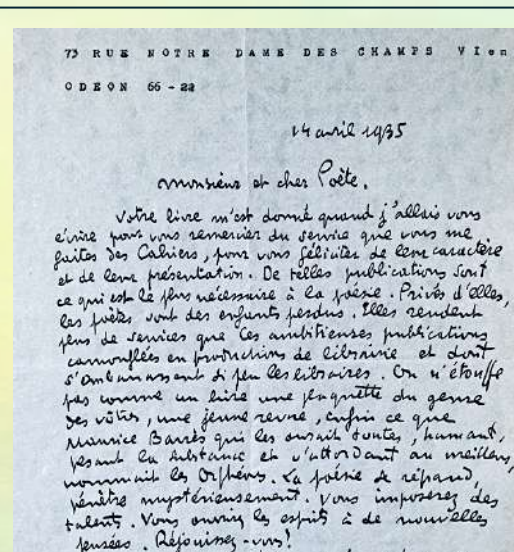 73 RUE NOTRE DAME DES CHAMPS VIen
ODEON 66-22
14 avril 1935
Monsieur et cher Poète,
Votre livre m'est donné quand j'allais vous
écrire pour vous remercier du service que vous me
faites des Cahiers, pour vous féliciter de leur caractère
et de leur présentation. De telles publications sont
ce qui est le plus nécessaire à la poésie. Privés d'elles,
les poètes sont des enfants perdus. Elles rendent
plus de services que ces ambitieuses publications
camouflées en productions de librairie et dont
s'embarrassent si peu les libraires. On n'étouffe
pas comme un livre une plaquette du genre
des vôtres, une jeune revue, enfin ce que
Maurice Barrès qui les ouvrait toutes, humant,
pesant la substance et s'attardant au meilleur,
nommait les Orphéons. La poésie se répand,
pénètre mystérieusement. Vous imposerez des
talents. Vous ouvrirez les esprits à de nouvelles
pensées. Réjouissez-vous!